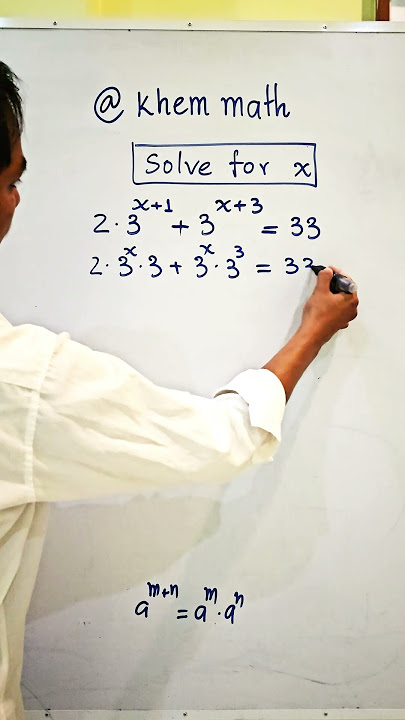 @ khem math
Solve for x
2·3^{x+1} + 3^{x+3} = 33
2·3^x·3 + 3^x·3^3 = 33
a^{m+n} = a^m·a^n